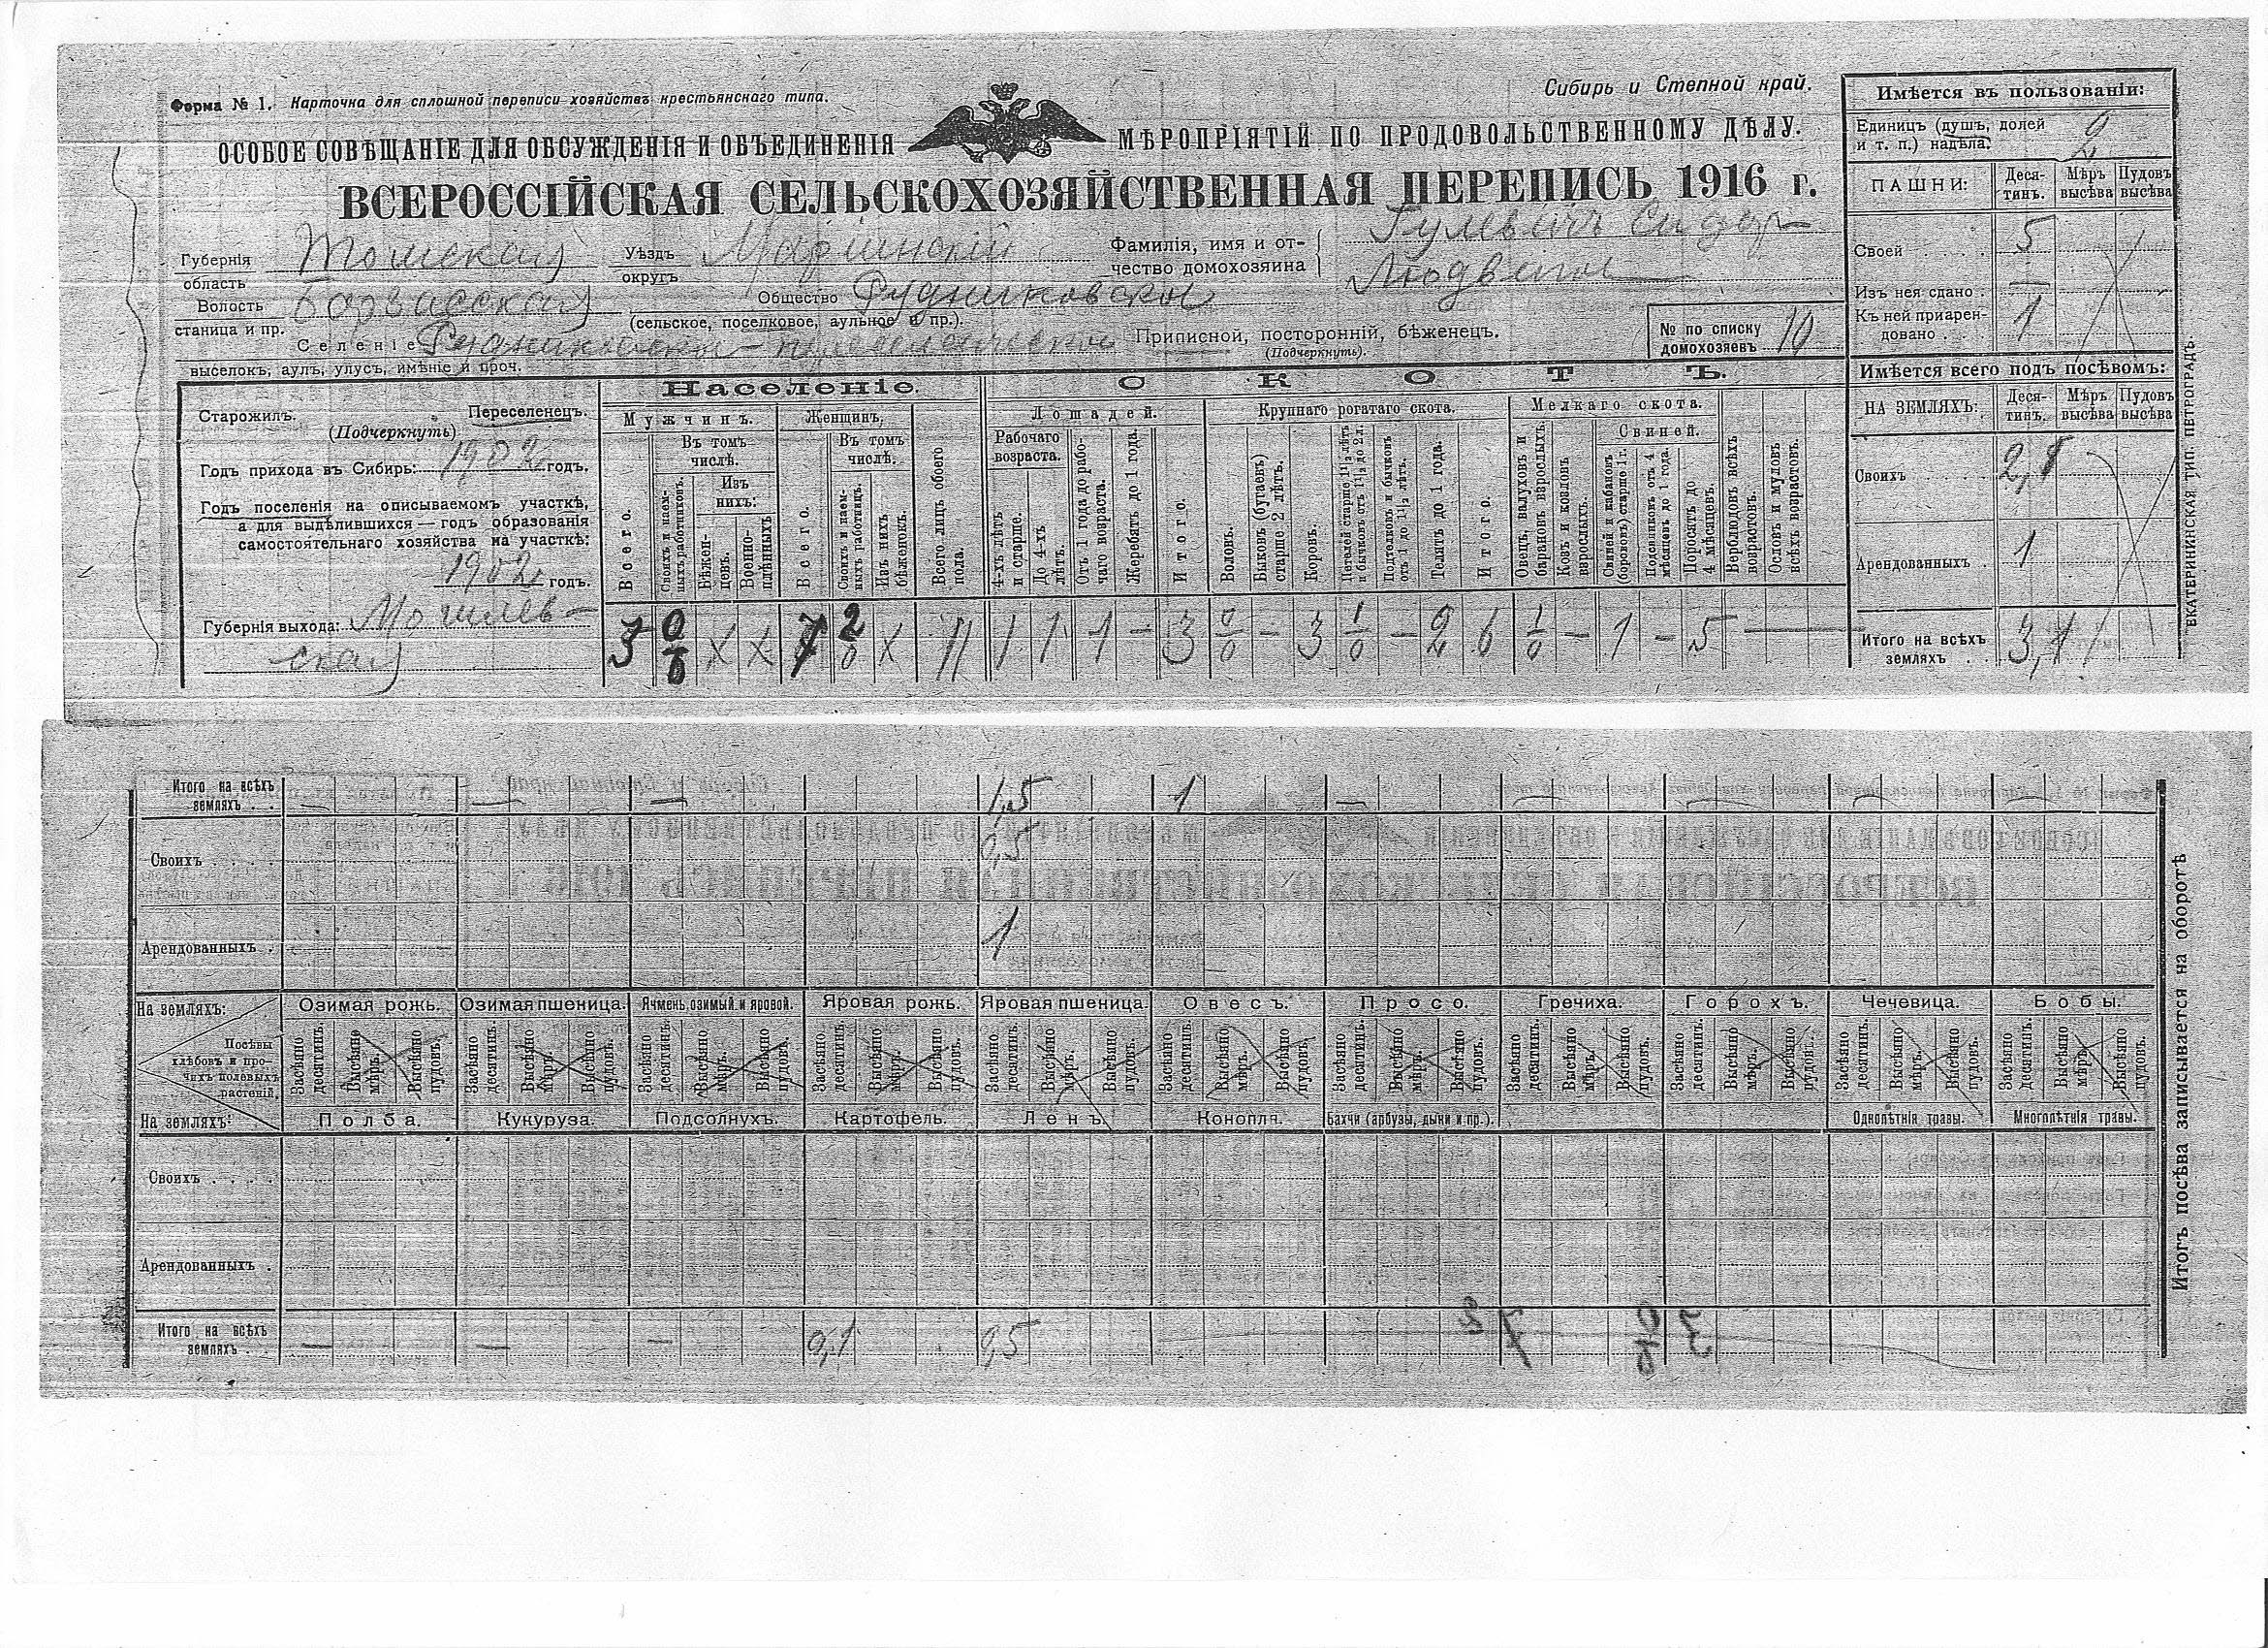 Форма № 1. Карточка для сплошной переписи хозяйствъ крестьянскаго типа.
Сибирь и Степной край.
ОСОБОЕ СОВѢЩАНІЕ ДЛЯ ОБСУЖДЕНІЯ И ОБЪЕДИНЕНІЯ МѢРОПРІЯТІЙ ПО ПРОДОВОЛЬСТВЕННОМУ ДѢЛУ.
ВСЕРОССІЙСКАЯ СЕЛЬСКОХОЗЯЙСТВЕННАЯ ПЕРЕПИСЬ 1916 г.
Губернія область Томская
Уѣздъ округъ Маріинскій
Фамилія, имя и отчество домохозяина Гулевичъ Сидор Людвигов
Волость станица и пр.
Общество Рудниковское
(сельское, поселковое, аульное и пр.).
Селеніе
выселокъ, аулъ, улусъ, имѣніе и проч.
Приписной, посторонній, бѣженецъ.
(Подчеркнуть).
№ по списку домохозяевъ 10
Старожилъ. Переселенецъ.
(Подчеркнуть)
Годъ прихода въ Сибирь: 1902 годъ.
Годъ поселенія на описываемомъ участкѣ,
а для выдѣлившихся — годъ образованія
самостоятельнаго хозяйства на участкѣ:
1902 годъ.
Губернія выхода: Могилев-
ская
Населеніе.
Мужчинъ. Женщинъ.
Всего.
Въ томъ числѣ.
Своихъ и наемныхъ работниковъ.
Изъ нихъ:
Бѣженцевъ.
Военноплѣнныхъ
Всего.
Въ томъ числѣ.
Своихъ и наемныхъ работницъ.
Изъ нихъ бѣженокъ.
Всего лицъ обоего пола.
СКОТЪ.
Лошадей.
Рабочаго возраста.
4-хъ лѣтъ и старше.
До 4-хъ лѣтъ.
Отъ 1 года до рабочаго возраста.
Жеребятъ до 1 года.
Итого.
Крупнаго рогатаго скота.
Воловъ.
Быковъ (бугаевъ) старше 2 лѣтъ.
Коровъ.
Нетелей старше 1 1/2 лѣтъ и бычковъ отъ 1 1/2 до 2 л.
Подтелковъ и бычковъ отъ 1 до 1 1/2 лѣтъ.
Телятъ до 1 года.
Итого.
Мелкаго скота.
Овецъ, валуховъ и барановъ взрослыхъ.
Козъ и козловъ взрослыхъ.
Свиней.
Свиней и кабановъ (борововъ) старше 1 г.
Подсвинковъ отъ 4 мѣсяцевъ до 1 года.
Поросятъ до 4 мѣсяцевъ.
Верблюдовъ всѣхъ возрастовъ.
Ословъ и муловъ всѣхъ возрастовъ.
2/0 х 11 1 1 1 — 3 0/0 — 3 1/0 — 2 6 1/0 — 1 — 5 —
Имѣется въ пользованіи:
Единицъ (душъ, долей и т. п.) надѣла: 2
ПАШНИ: Десятинъ. Мѣръ высѣва Пудовъ высѣва
Своей 5
Изъ нея сдано —
Къ ней приарендовано 1
Имѣется всего подъ посѣвомъ:
НА ЗЕМЛЯХЪ: Десятинъ. Мѣръ высѣва Пудовъ высѣва
Своихъ
Арендованныхъ 1
Итого на всѣхъ земляхъ 3,1
ЕКАТЕРИНИНСКАЯ ТИП. ПЕТРОГРАДЪ.
Итого на всѣхъ земляхъ — — — 1,5 1 —
Своихъ 0,5
Арендованныхъ 1
На земляхъ: Озимая рожь. Озимая пшеница. Ячмень, озимый и яровой. Яровая рожь. Яровая пшеница. Овесъ. Просо. Гречиха. Горохъ. Чечевица. Бобы.
Посѣвы хлѣбовъ и прочихъ полевыхъ растеній.
Засѣяно десятинъ. Высѣяно мѣръ. Высѣяно пудовъ.
На земляхъ: Полба. Кукуруза. Подсолнухъ. Картофель. Ленъ. Конопля. Бахчи (арбузы, дыни и пр.). Однолѣтнія травы. Многолѣтнія травы.
Своихъ
Арендованныхъ
Итого на всѣхъ земляхъ — — — 0,1 0,5
Итогъ посѣва записывается на оборотѣ